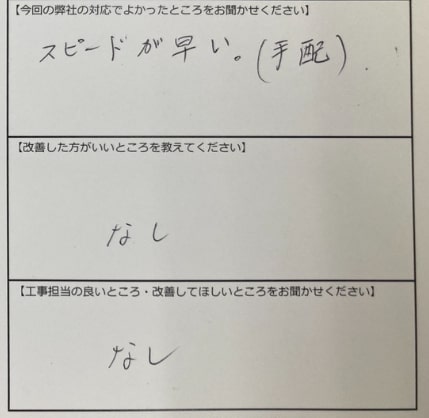 【今回の弊社の対応でよかったところをお聞かせください】
スピードが早い。(手配)
【改善した方がいいところを教えてください】
なし
【工事担当の良いところ・改善してほしいところをお聞かせください】
なし